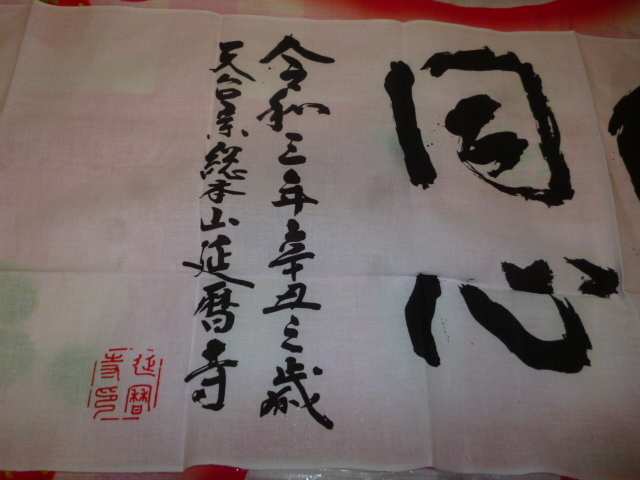 同心
令和三年辛丑之歳
天台宗総本山延暦寺
延暦
寺印